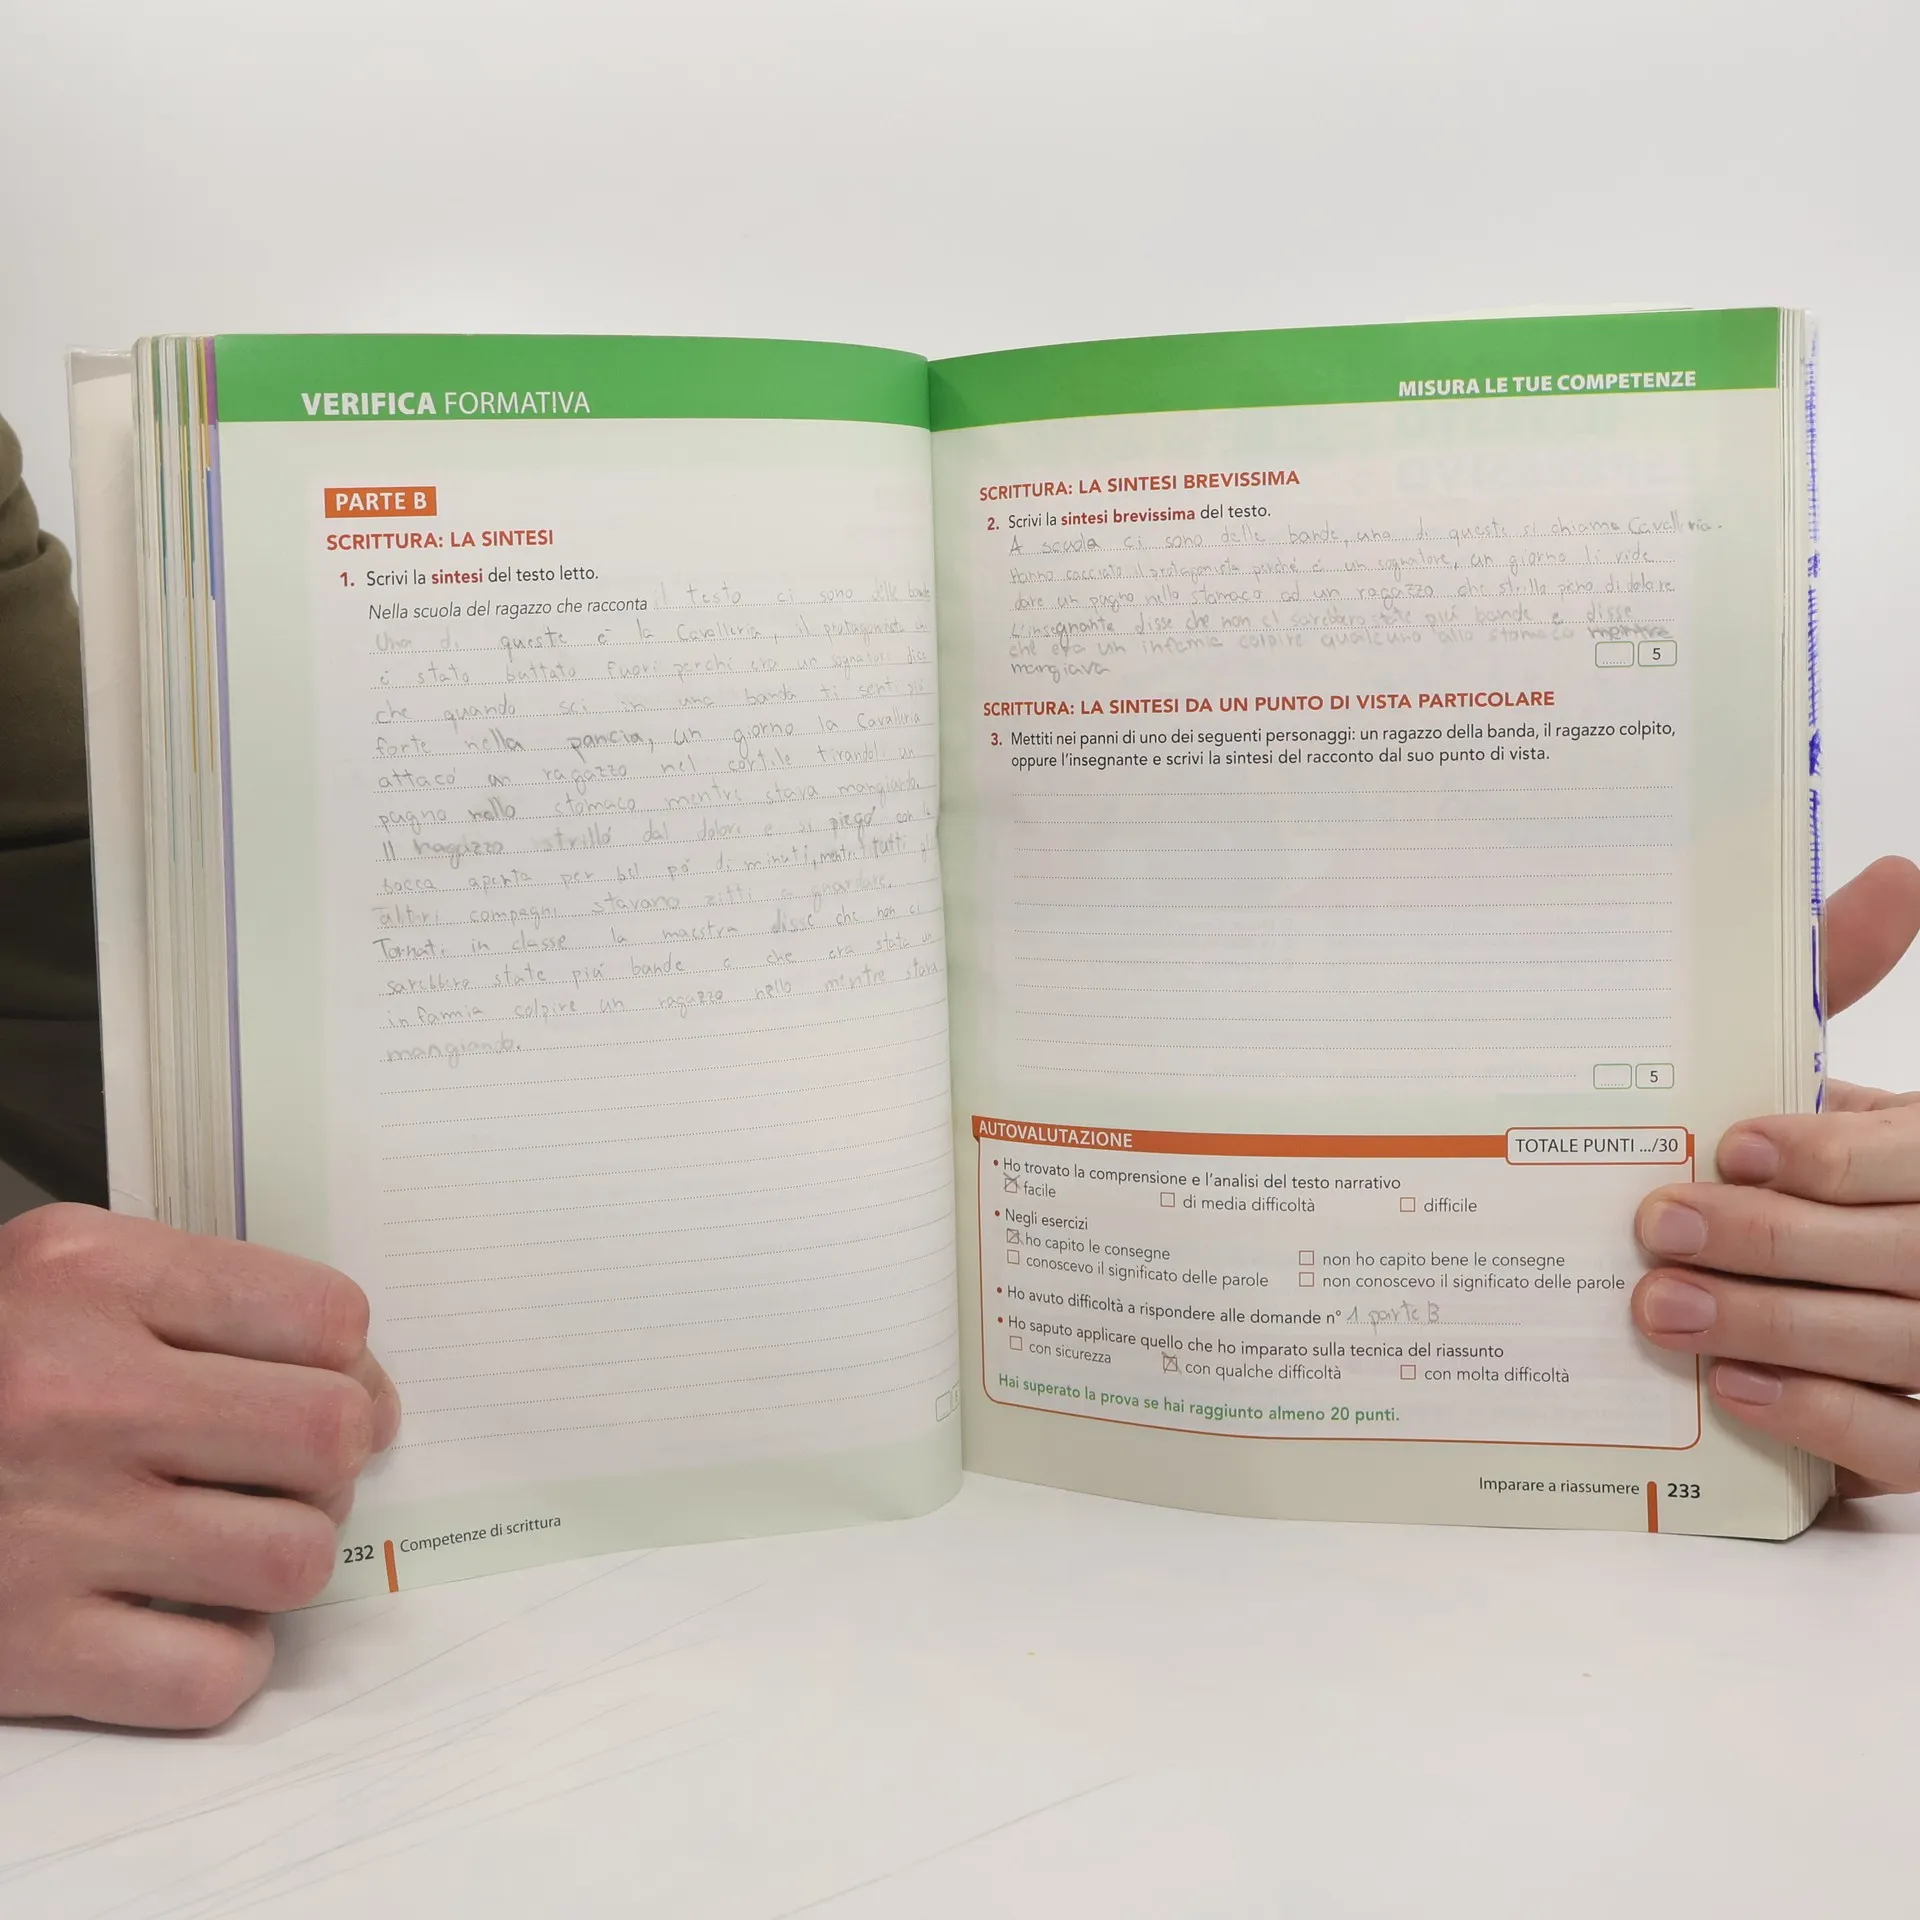 VERIFICA FORMATIVA
PARTE B
SCRITTURA: LA SINTESI
1. Scrivi la sintesi del testo letto.
Nella scuola del ragazzo che racconta il testo ci sono delle bande
Una di queste è la Cavalleria, il protagonista
è stato buttato fuori perché era un sognatore dice
che quando sei in una banda ti senti più
forte nella pancia, un giorno la Cavalleria
attacò un ragazzo nel cortile tirandoli un
pugno nello stomaco mentre stava mangiando.
Il ragazzo strillò dal dolore e si piegò con la
bocca aperta per bel pò di minuti, mentre tutti gli
altri compagni stavano zitti a guardare.
Tornati in classe la maestra disse che non ci
sarebbero state più bande e che era stata un
infamia colpire un ragazzo nello mentre stava
mangiando.
232 Competenze di scrittura
MISURA LE TUE COMPETENZE
SCRITTURA: LA SINTESI BREVISSIMA
2. Scrivi la sintesi brevissima del testo.
A scuola ci sono delle bande, una di queste si chiama Cavalleria.
Hanno cacciato il protagonista perché è un sognatore, un giorno li vide
dare un pugno nello stomaco ad un ragazzo che strilla pieno di dolore
L'insegnante disse che non ci sarebbero state più bande e disse
che era un infamia colpire qualcuno allo stomaco mentre
mangiava
5
SCRITTURA: LA SINTESI DA UN PUNTO DI VISTA PARTICOLARE
3. Mettiti nei panni di uno dei seguenti personaggi: un ragazzo della banda, il ragazzo colpito,
oppure l'insegnante e scrivi la sintesi del racconto dal suo punto di vista.
5
AUTOVALUTAZIONE
TOTALE PUNTI .../30
• Ho trovato la comprensione e l'analisi del testo narrativo
facile di media difficoltà difficile
• Negli esercizi
ho capito le consegne non ho capito bene le consegne
conoscevo il significato delle parole non conoscevo il significato delle parole
• Ho avuto difficoltà a rispondere alle domande n° 1 parte B
• Ho saputo applicare quello che ho imparato sulla tecnica del riassunto
con sicurezza con qualche difficoltà con molta difficoltà
Hai superato la prova se hai raggiunto almeno 20 punti.
Imparare a riassumere 233